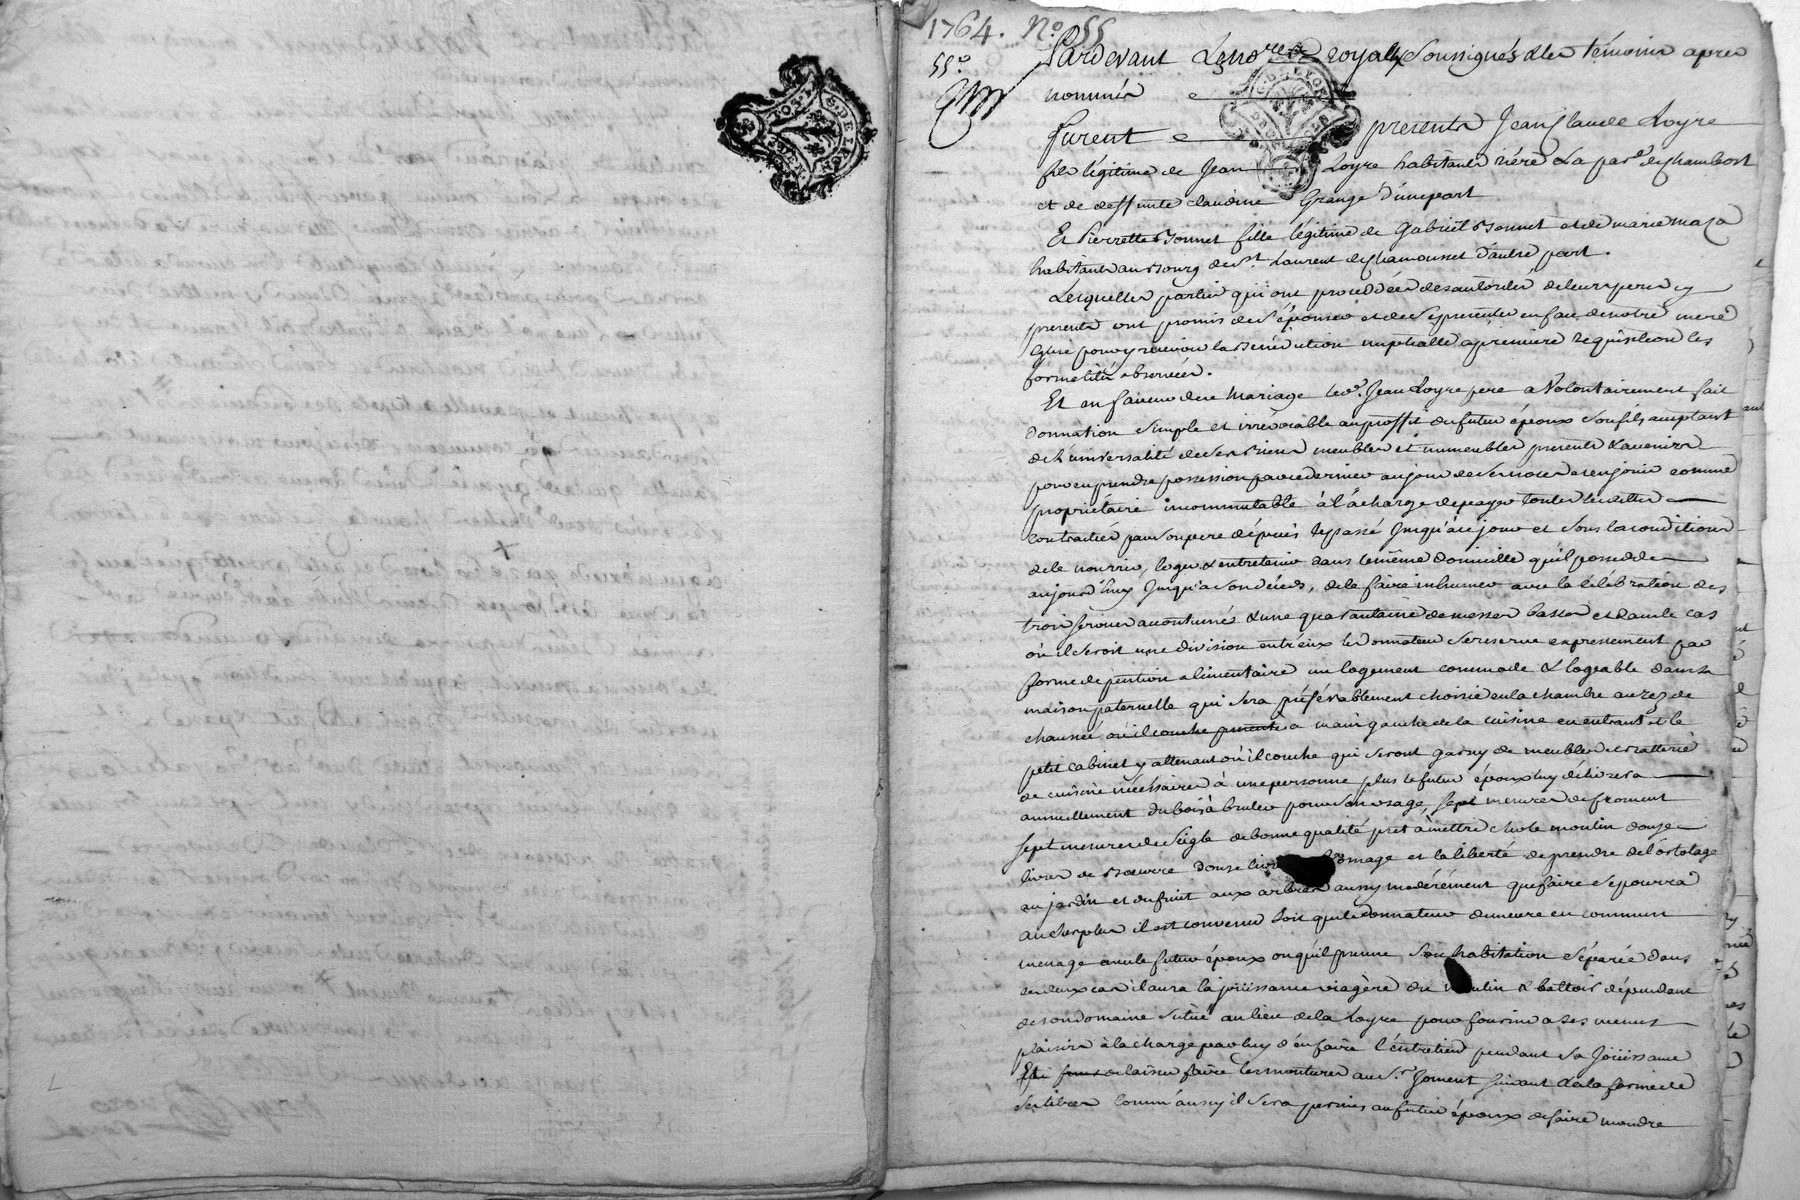 1764. N.º 55
55.º
Pardevant Le no.re royal Soussignés & les témoins apres
nommés
furent presents Jean Claude Loyre
fils légitime de Jean Loyre habitants rière La par.e de Chambost
et de deffunte claudine Grange d'une part
Et Pierrette Bonnet fille légitime de Gabriël Bonnet et de marie maza
habitants au Bourg de S.t Laurent de Chamousset d'autre part.
Lesquelles parties qui ont proceddées des autorités de leurs peres y
presents ont promis de S'épouser et de Se presenter en face de notre mere
Eglise pour y recevoir la Benediction nuptialle a premiere requisition les
formalités observées.
Et en faveur de ce mariage led.t Jean Loyre pere a Volontairement fait
donnation simple et irrévocable au proffit du futur époux son fils acceptant
de L'universalité de ses Biens meubles et immeubles presents & avenirs
pour en prendre possession par ce dernier au jour de ses noces et en jouir comme
propriétaire incommutable à la charge de payer toutes les dettes
contractées par son pere depuis le passé Jusqu'à ce jour et sous la condition
de le nourrir, loger & entretenir dans le même domicille qu'il possedde
aujourd'huy Jusqu'a son décéds, de le faire inhumer avec la célébration des
trois services accoutumés & une quarantaine de messes basses et dans le cas
où il seroit une division entr'eux le donnateur se reserve expressement par
forme de pention alimentaire un logement commode & logeable dans sa
maison paternelle qui sera préférablement choisie en la chambre au rez de
chaussée où il couche presente a main gauche de la cuisine en entrant et le
petit cabinet y attenant où il couche qui seront garny de meubles et batterie
de cuisine nécéssaires à une personne plus le futur époux luy délivrera
annuellement du bois à bruler pour son usage, sept mesures de froment
sept mesures de seigle de bonne qualité pret à mettre chés le moulin douze
livres de Beurre douze livres fromage et la liberté de prendre de l'ortolage
au jardin et du fruit aux arbres aussy modérément que faire se pourra
au surplus il est convenu soit que le donnateur demeure en commun
menage avec le futur époux ou qu'il prenne son habitation séparée dans
les deux cas il aura la jouissance viagère du moulin & battoir dépendant
de son domaine situé au lieu de la Loyre pour fournir a ses menus
plaisirs à la charge par luy d'en faire l'entretien pendant sa Joüissance
Et de laisser faire les moutures au S.r Joment suivant
comm'aussy il sera permis au futur époux de faire moudre